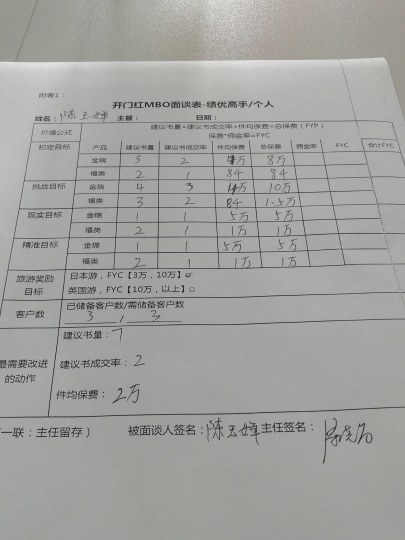 附表1：
开门红MBO面谈表-绩优高手/个人
姓名：陈玉婵 主管： 日期：
价值公式 建议书量*建议书成交率*件均保费=总保费（FYP）
保费*佣金率=FYC
初定目标 产品 建议书量 建议书成交率 件均保费 总保费 佣金率 FYC 合计FYC
金瑞 3 2 4万 8万
福类 2 1 84 84
挑战目标 金瑞 4 3 10万
福类 3 2 84 1.5万
现实目标 金瑞 1 1 5万 5万
福类 2 1 1万 1万
精准目标 金瑞 1 1 5万 5万
福类 2 1 1万 1万
旅游奖励 日本游，FYC【3万，10万】
目标 英国游，FYC【10万，以上】□
客户数 已储备客户数/需储备客户数
3 / 3
建议书量：7
最需要改进 建议书成交率：2
的动作
件均保费：2万
一联：主任留存） 被面谈人签名：陈玉婵 主任签名：